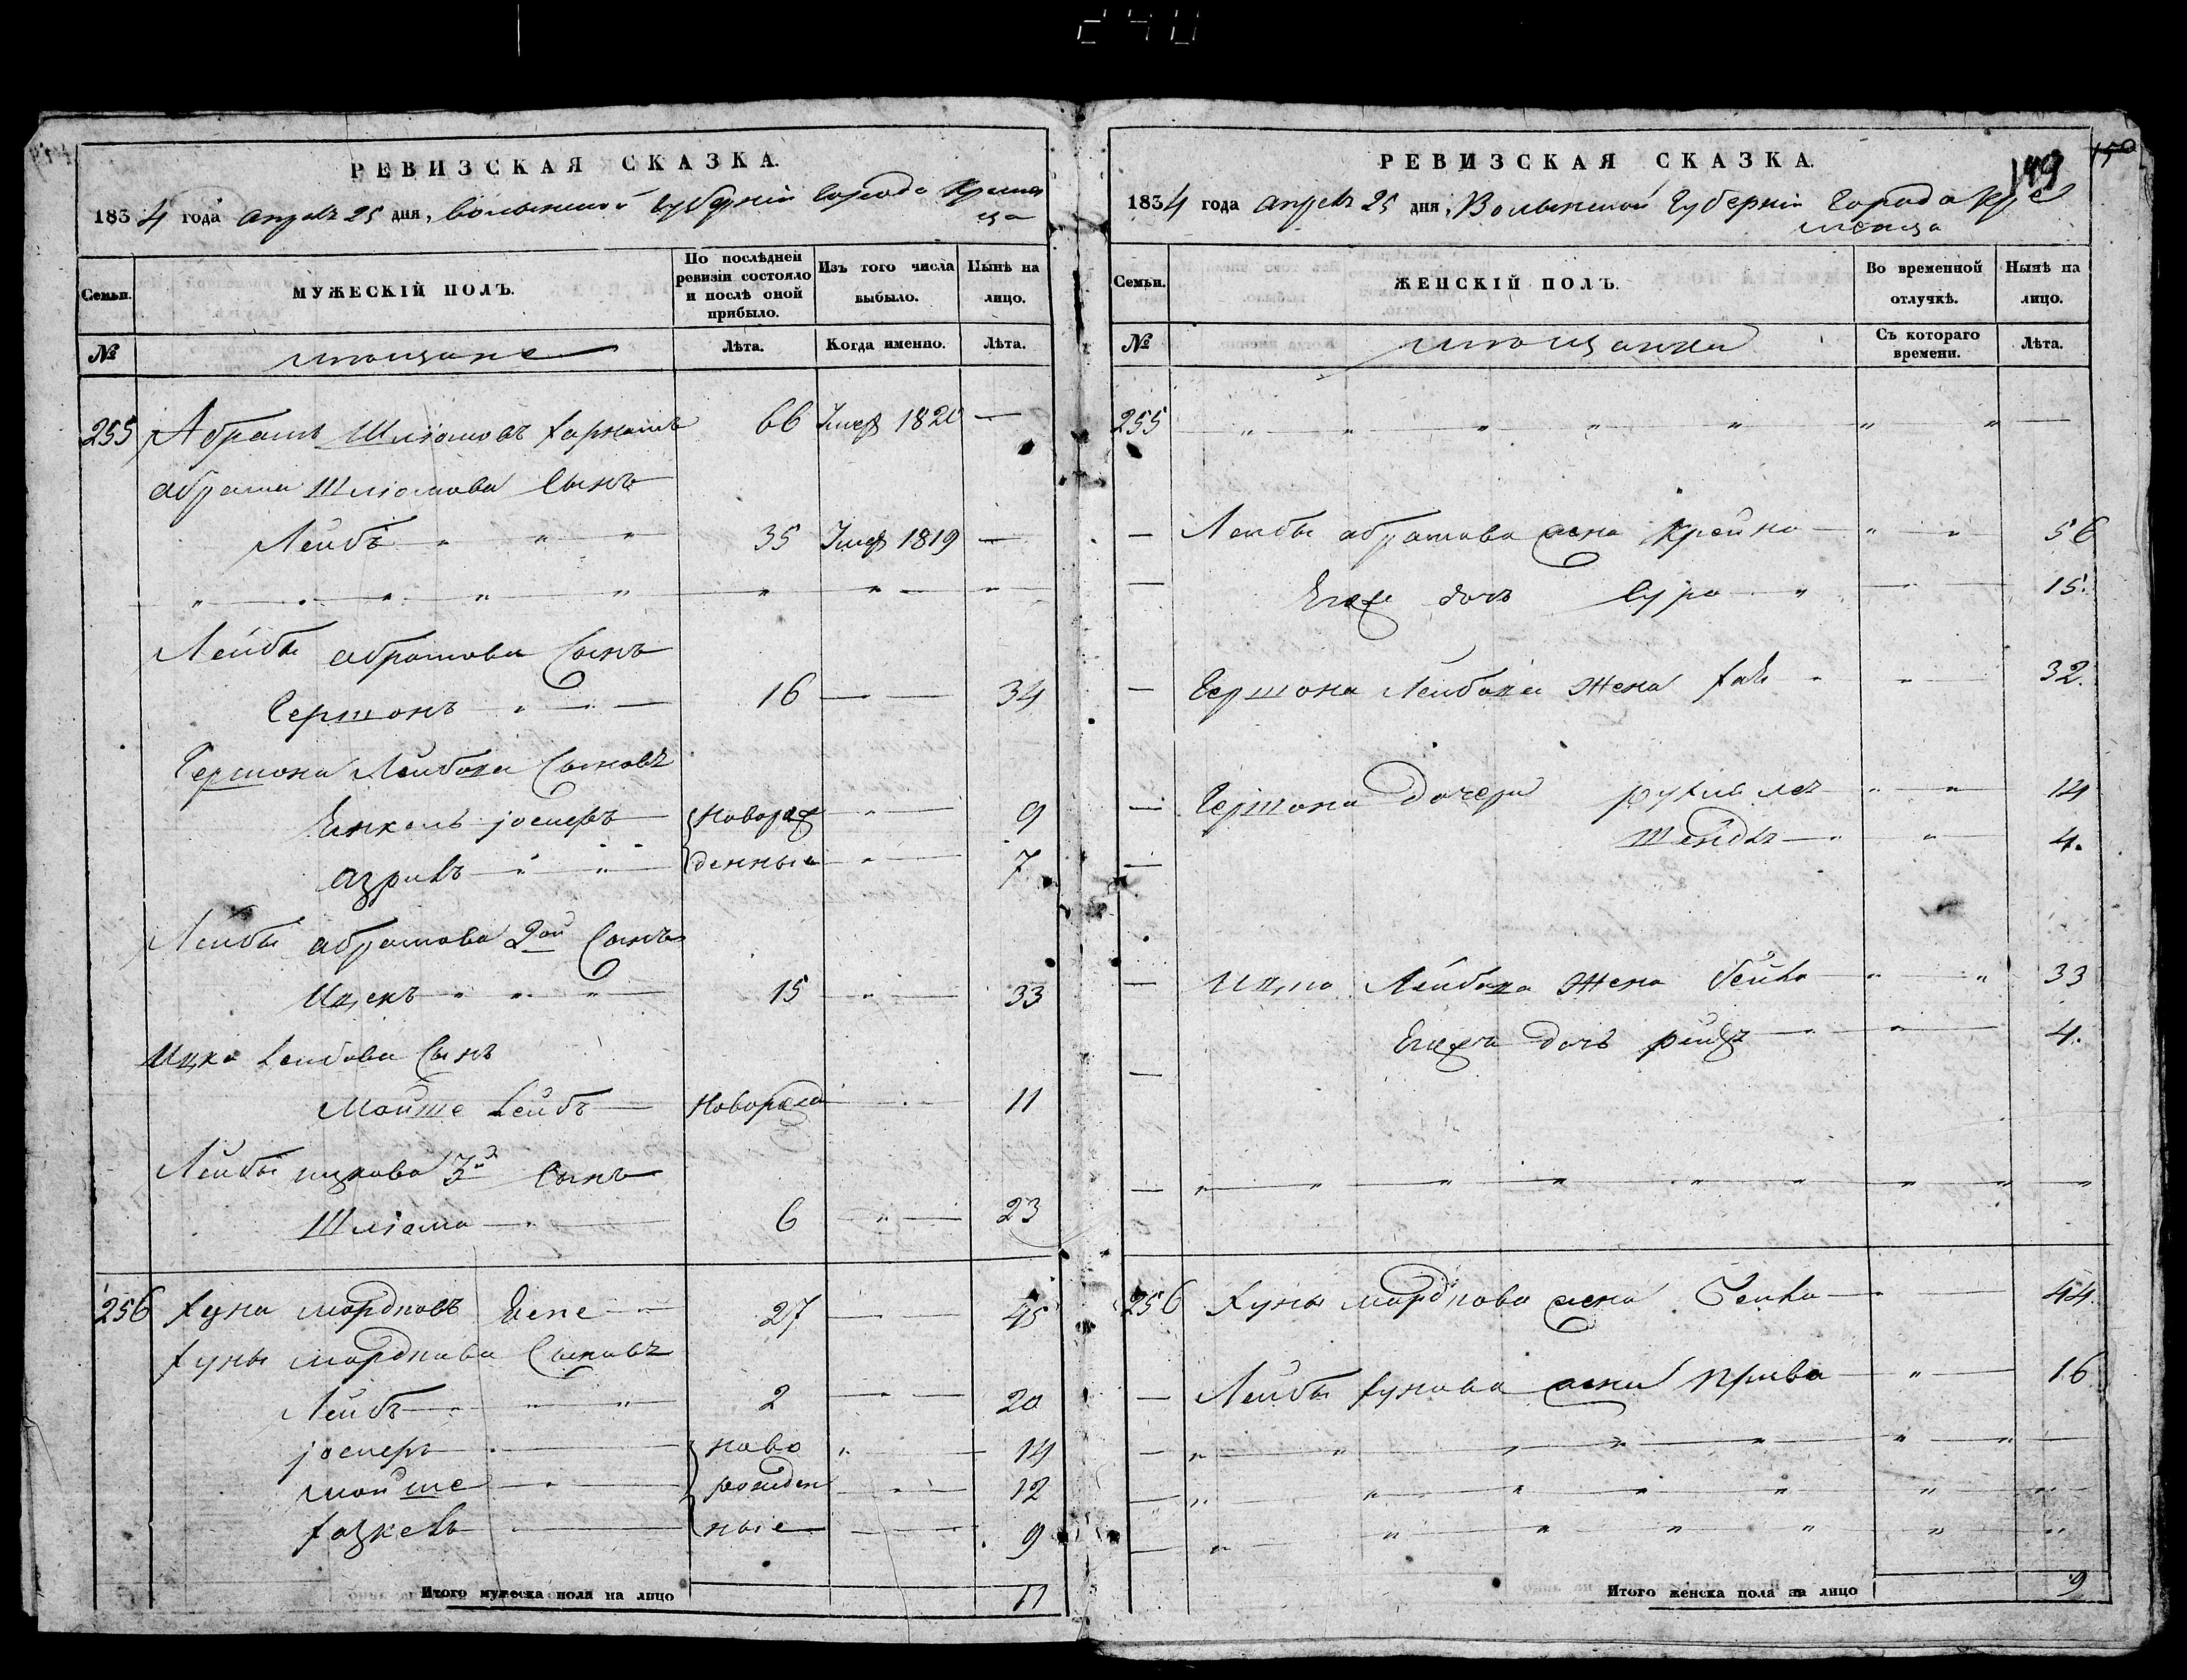 240
РЕВИЗСКАЯ СКАЗКА.
1834 года апрель 25 дня, Волынской Губерніи Города Кременца
Семьи.
МУЖЕСКІЙ ПОЛЪ.
По послѣдней ревизіи состояло и послѣ оной прибыло.
Изъ того числа выбыло.
Нынѣ на лицо.
№
мещане
Лѣта.
Когда именно.
Лѣта.
255 Абрамъ Шліомовъ 66 Умер 1820 —
абрама Шліомова Сынъ
Лейбъ 35 Умер 1819 —
Лейбы абрамова Сынъ
Гершонъ 16 — 34
Гершона Лейбова Сыновъ
Янкель іосифъ Новорож 9
азриль денные 7
Лейбы абрамова 2ой Сынъ
Ицекъ 15 — 33
Ицка Лейбова Сынъ
Мойше Лейбъ Новорож 11
Лейбы 3й Сынъ
Шліома 6 — 23
256 Хуна мордковъ 27 — 45
Хуны мордкова Сыновъ
Лейбъ 2 — 20
іосифъ ново 14
мойше рожден 12
хазкель ные 9
Итого мужеска пола на лицо 11
149
150
РЕВИЗСКАЯ СКАЗКА.
1834 года апрель 25 дня, Волынской Губерніи Города Кременца
Семьи.
ЖЕНСКІЙ ПОЛЪ.
Во временной отлучкѣ.
Нынѣ на лицо.
№
мещанки
Съ котораго времени.
Лѣта.
255
— Лейбы абрамова жена Крейна 56
— Его дочь Сура 15
— Гершона Лейбова Жена 32
— Гершона Дочери рухля 14
— Шейдль 4.
— Ицка Лейбова Жена Бейла 33
Его дочь 4.
256 Хуны мордкова жена Бейла 44
— Лейбы хунова жена 16
Итого женска пола на лицо 9